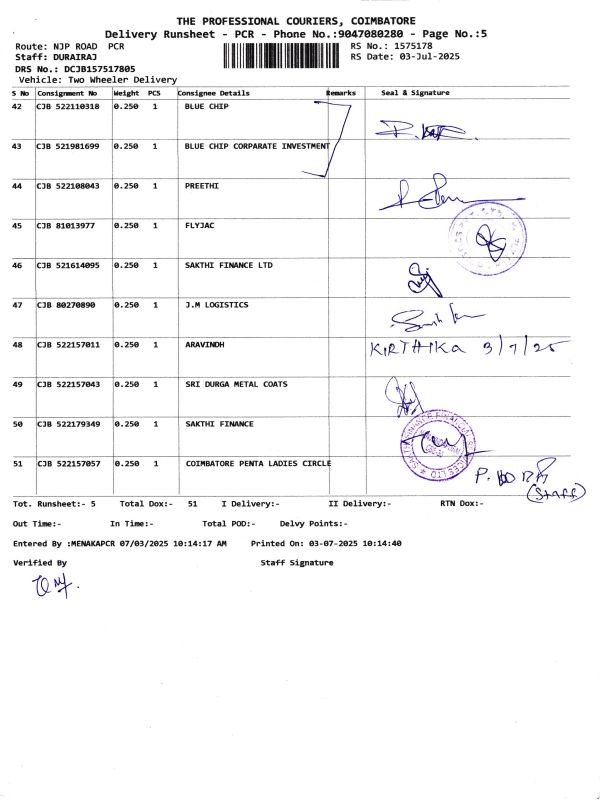 THE PROFESSIONAL COURIERS, COIMBATORE
Delivery Runsheet - PCR - Phone No.:9047080280 - Page No.:5
Route: NJP ROAD PCR RS No.: 1575178
Staff: DURAIRAJ RS Date: 03-Jul-2025
DRS No.: DCJB157517805
Vehicle: Two Wheeler Delivery
S No Consignment No Weight PCS Consignee Details Remarks Seal & Signature
42 CJB 522110318 0.250 1 BLUE CHIP
43 CJB 521981699 0.250 1 BLUE CHIP CORPARATE INVESTMENT
44 CJB 522108043 0.250 1 PREETHI
45 CJB 81013977 0.250 1 FLYJAC
46 CJB 521614095 0.250 1 SAKTHI FINANCE LTD
47 CJB 80270890 0.250 1 J.M LOGISTICS
48 CJB 522157011 0.250 1 ARAVINDH KIRTHIKA 3/7/25
49 CJB 522157043 0.250 1 SRI DURGA METAL COATS
50 CJB 522179349 0.250 1 SAKTHI FINANCE
51 CJB 522157057 0.250 1 COIMBATORE PENTA LADIES CIRCLE
(Staff)
Tot. Runsheet:- 5 Total Dox:- 51 I Delivery:- II Delivery:- RTN Dox:-
Out Time:- In Time:- Total POD:- Delvy Points:-
Entered By :MENAKAPCR 07/03/2025 10:14:17 AM Printed On: 03-07-2025 10:14:40
Verified By Staff Signature